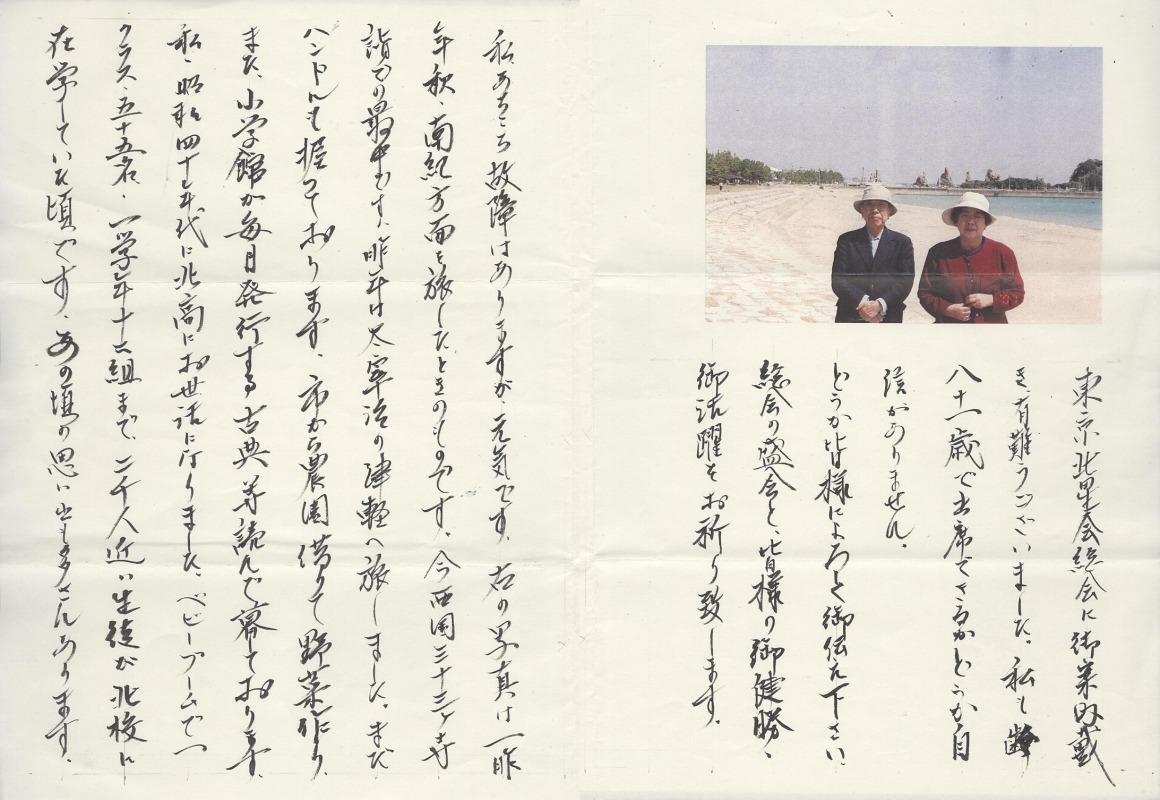 東京北星会総会に御案内戴
き有難うございました。私も齢
八十一歳で出席できるかどうか自
信がありません。
どうか皆様によろしく御伝え下さい
総会の盛会と、皆様の御健勝・
御活躍をお祈り致します。
私あちこち故障はありますが、元気です。右の写真は一昨
年秋、南紀方面を旅したときのものです。今西国三十三ヶ寺
詣での最中です。昨年は太宰治の津軽へ旅しました。まだ
ハンドルも握っております。市から農園借りて野菜作り、
また、小学館が毎月発行する古典等読んで寮ております。
私、昭和四十年代に北高にお世話になりました。ベビーブームで一
クラス、五十五名、一学年十二組まで、二千人近い生徒が北校に
在学していた頃です。あの頃の思い出も多さんあります。